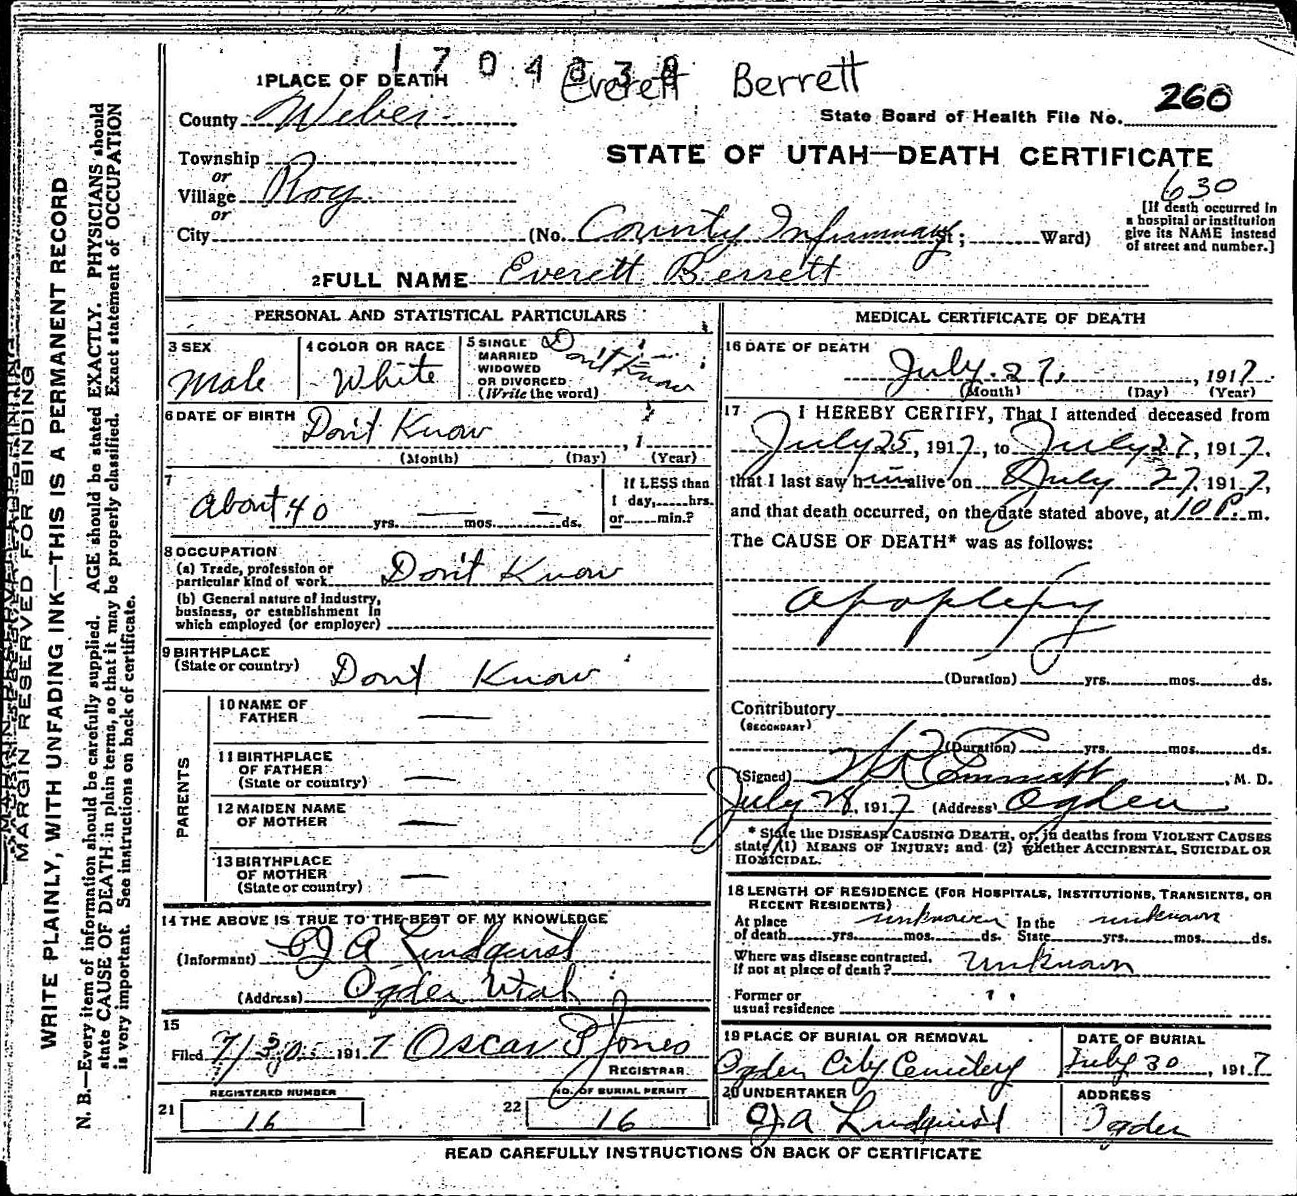 1704338
Everett Berrett
1 PLACE OF DEATH
County Weber
State Board of Health File No. 260
Township
or
Village Roy
or
City
STATE OF UTAH—DEATH CERTIFICATE
630
[If death occurred in
a hospital or institution
give its NAME instead
of street and number.]
(No. County Infirmary St; Ward)
2 FULL NAME Everett Berrett
PERSONAL AND STATISTICAL PARTICULARS
3 SEX
Male
4 COLOR OR RACE
White
5 SINGLE
MARRIED
WIDOWED
OR DIVORCED
(Write the word)
Don't Know
6 DATE OF BIRTH Don't Know
, 1
(Month) (Day) (Year)
7
About 40 yrs. — mos. — ds.
If LESS than
1 day, hrs.
or min.?
8 OCCUPATION
(a) Trade, profession or
particular kind of work Don't Know
(b) General nature of industry,
business, or establishment in
which employed (or employer)
9 BIRTHPLACE
(State or country) Don't Know
PARENTS
10 NAME OF
FATHER —
11 BIRTHPLACE
OF FATHER
(State or country) —
12 MAIDEN NAME
OF MOTHER —
13 BIRTHPLACE
OF MOTHER
(State or country) —
14 THE ABOVE IS TRUE TO THE BEST OF MY KNOWLEDGE
(Informant) O J A Lindquist
(Address) Ogden Utah
15
Filed 7/30 1917 Oscar P Jones
REGISTRAR
REGISTERED NUMBER
21 16
NO. OF BURIAL PERMIT
22 16
MEDICAL CERTIFICATE OF DEATH
16 DATE OF DEATH
July 27, 1917
(Month) (Day) (Year)
17 I HEREBY CERTIFY, That I attended deceased from
July 25, 1917, to July 27, 1917,
that I last saw him alive on July 27, 1917,
and that death occurred, on the date stated above, at 10 P. m.
The CAUSE OF DEATH* was as follows:
apoplexy
(Duration) yrs. mos. ds.
Contributory
(SECONDARY)
(Duration) yrs. mos. ds.
(Signed) Emmett, M. D.
July 28, 1917 (Address) Ogden
* State the DISEASE CAUSING DEATH, or, in deaths from VIOLENT CAUSES
state (1) MEANS OF INJURY; and (2) whether ACCIDENTAL, SUICIDAL OR
HOMICIDAL.
18 LENGTH OF RESIDENCE (FOR HOSPITALS, INSTITUTIONS, TRANSIENTS, OR
RECENT RESIDENTS)
At place unknown In the unknown
of death yrs. mos. ds. State yrs. mos. ds.
Where was disease contracted,
if not at place of death? Unknown
Former or
usual residence
19 PLACE OF BURIAL OR REMOVAL
Ogden City Cemetery
DATE OF BURIAL
July 30, 1917
20 UNDERTAKER
O J A Lindquist
ADDRESS
Ogden
READ CAREFULLY INSTRUCTIONS ON BACK OF CERTIFICATE
MARGIN RESERVED FOR BINDING
WRITE PLAINLY, WITH UNFADING INK—THIS IS A PERMANENT RECORD
N. B.—Every item of information should be carefully supplied. AGE should be stated EXACTLY. PHYSICIANS should
state CAUSE OF DEATH in plain terms, so that it may be properly classified. Exact statement of OCCUPATION
is very important. See instructions on back of certificate.